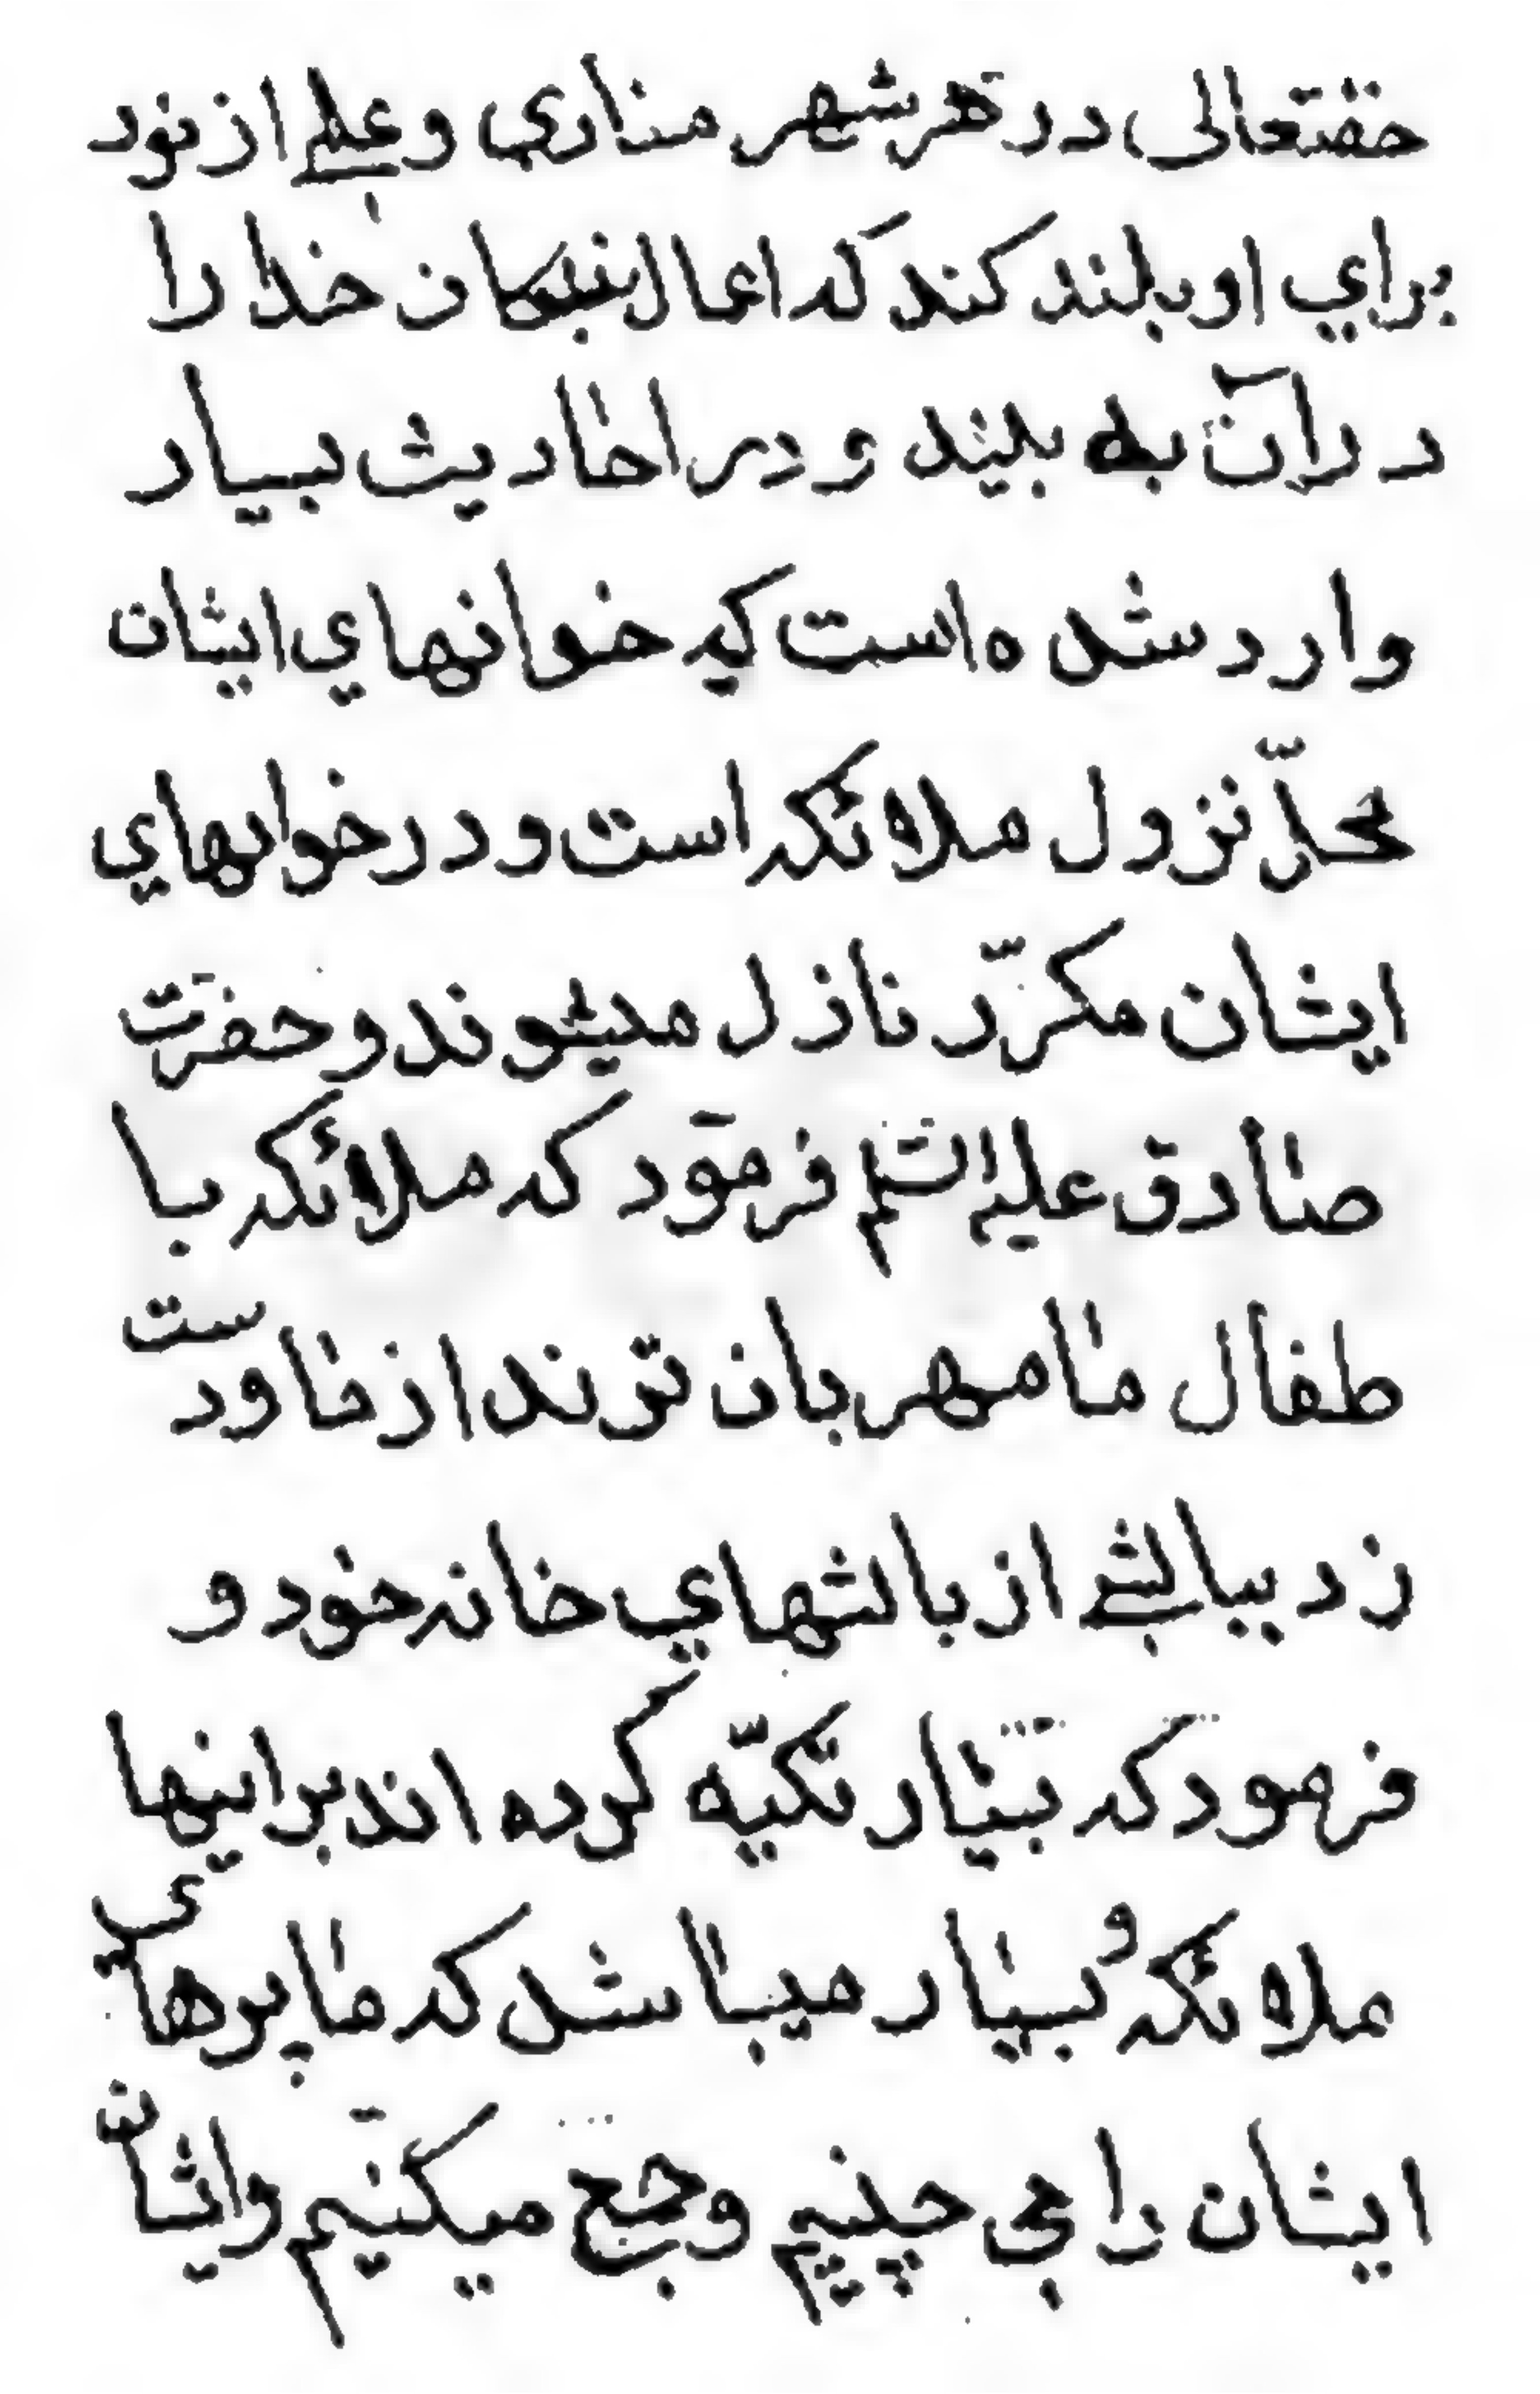 حقتعالی در هر شهر مناري و علمے از نور
براي او بلند کند که اعمال بندکان خدا را
در آن به بیند و در احادیث بسیار
وارد شده است که خوانهاي ایشان
محلّ نزول ملائکه است و در خوانهاي
ایشان مکرّر نازل میشوند و حضرت
صادق علیه السلم فرمود که ملائکه با
طفال ما مهربان ترند از ما و دست
زد ببالشے از بالشهاي خانه خود و
فرمود که بسیار تکیّه کرده اند بر اینها
ملائکه و بسیار میباشد که ما پرهاي
ایشان را مي چینیم و جمع میکنیم و ایشان